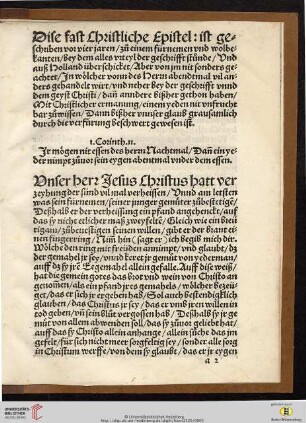 Dise fast Christliche Epistel: ist ge-
schriben vor vier jaren/ zů einem fürnemen vnd wolbe-
kanten/ bey dem alles vrteyl der geschrifft stünde/ Vnd
auß Holland überschicket/ Aber von jm nit sonders ge-
achtet/ In wölcher vonn des Herrn abendtmal vil an-
ders gehandelt würt/ vnd neher bey der geschrifft vnnd
dem geyst Christi/ dañ anndere bißher gethon haben/
Mit Christlicher ermanung/ einem yeden nit vnfrucht
bar zůwissen/ Dann bißher vnnser glauß grausamlich
durch die verfürung beschwert gewesen ist.
1. Corinth. 11.
Ir mögen nit essen des herrn Nachtmal/ Dañ ein ye-
der nimpt zůuor sein eygen abentmal vnder dem essen.
Vnser herr Jesus Christus hatt ver
zeyhung der sünd vil mal verheissen/ Vnnd am letsten
was sein fürnemen/ seiner junger gemüter zůbestetigē/
Deßhalb er der verheissung ein pfand angehenckt/ auff
das sy nicht etlicher maß zweyfeltē/ Gleich wie ein breü
tigam/ zůbeuestigen seinen willen/ gibt er der braut ei-
nen fingerring/ Nim hin (sagt er) ich begib mich dir.
Wölche den ring mit freüden annimpt/ vnd glaubt/ dz
der gemahel jr sey/ vnnd keret jr gmüt von yederman/
auff dz sy jrē Eegemahel allein gefalle. Auff dise weiß/
hat die gemein gotes das brot vnd wein von Christo an
genomen/ als ein pfand jres gemahels/ wölcher bezeü-
get/ das er sich jr ergeben hab/ Sol auch bestendigklich
glauben/ das Christus jr sey/ das er vnb jrent willen in
tod geben/ vñ sein blůt vergossen hab/ Deßhalb sy jr ge
müt von allem abwenden soll/ das sy zůuor geliebt hat/
auff das sy Christo allein anhange/ allein sůche das jm
gefelt/ für sich nicht meer sorgfeltig sey/ sonder alle sorg
in Christum werffe/ von dem sy glaubt/ das er jr eygen
a 2